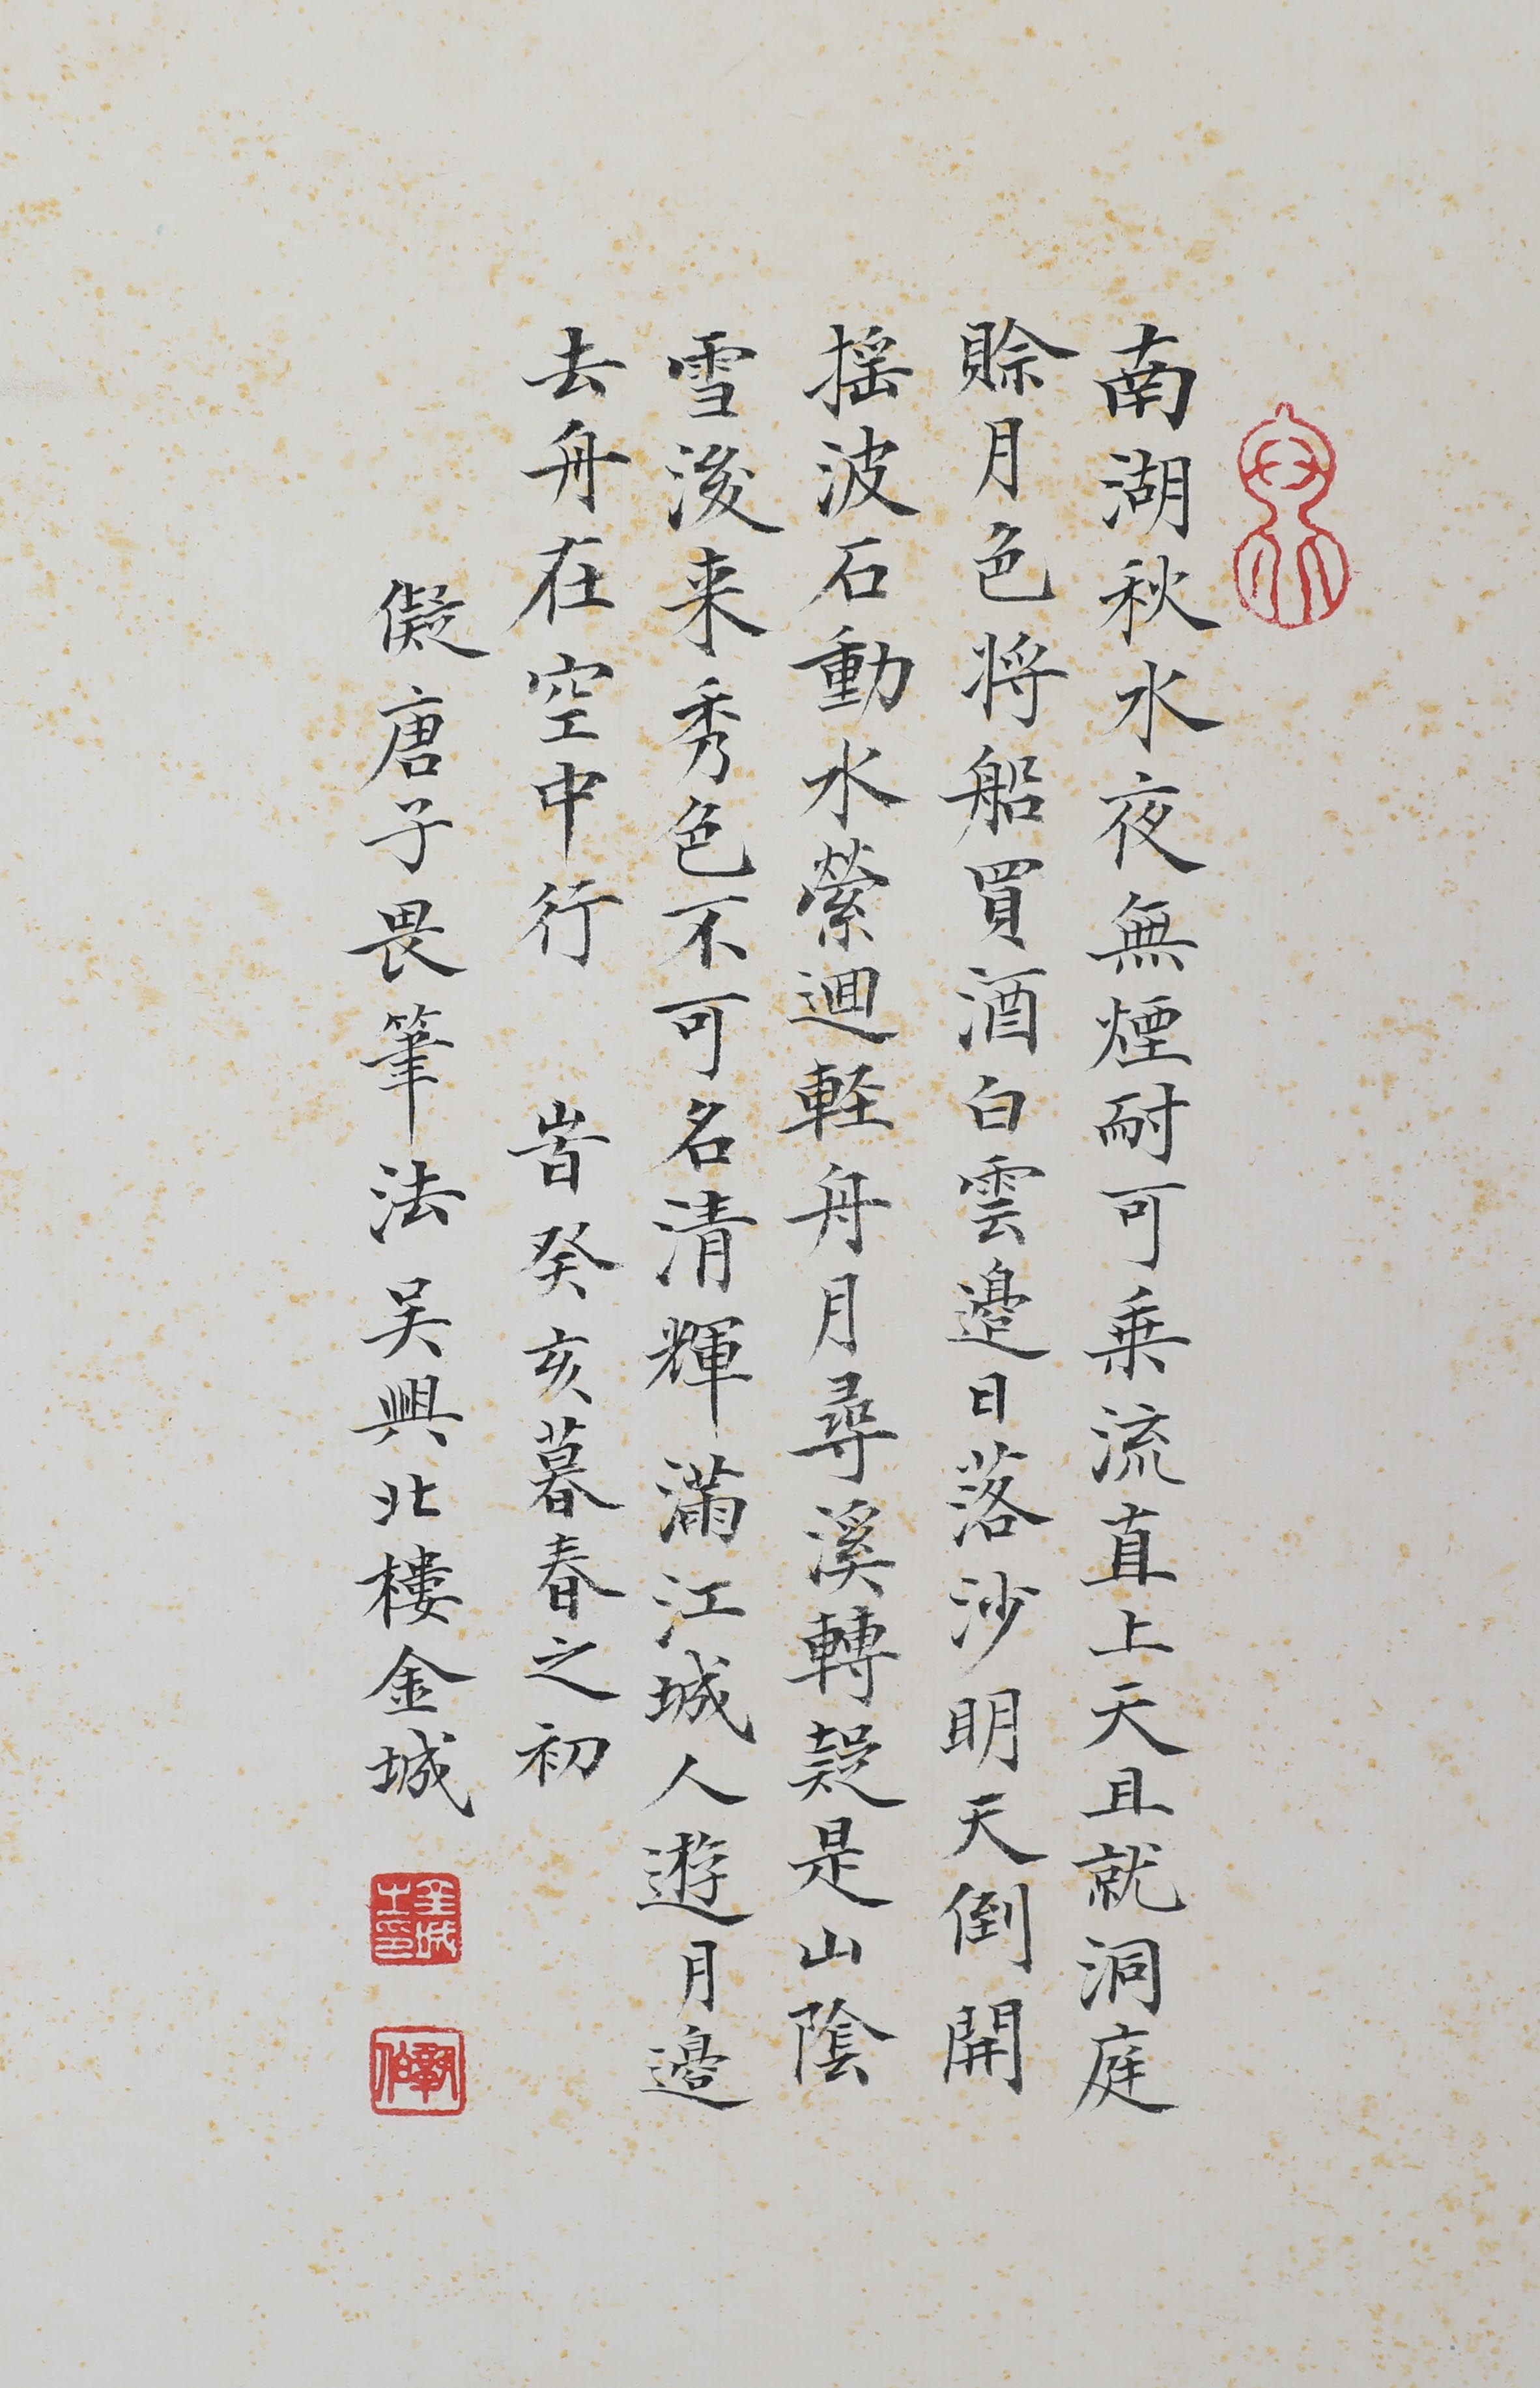 南湖秋水夜無煙耐可乗流直上天且就洞庭
賖月色将船買酒白雲邉日落沙明天倒開
揺波石動水縈迴軽舟月尋溪轉疑是山陰
雪後来秀色不可名清輝滿江城人遊月邉
去舟在空中行 旹癸亥暮春之初
儗唐子畏筆法吴興北樓金城
金城之印